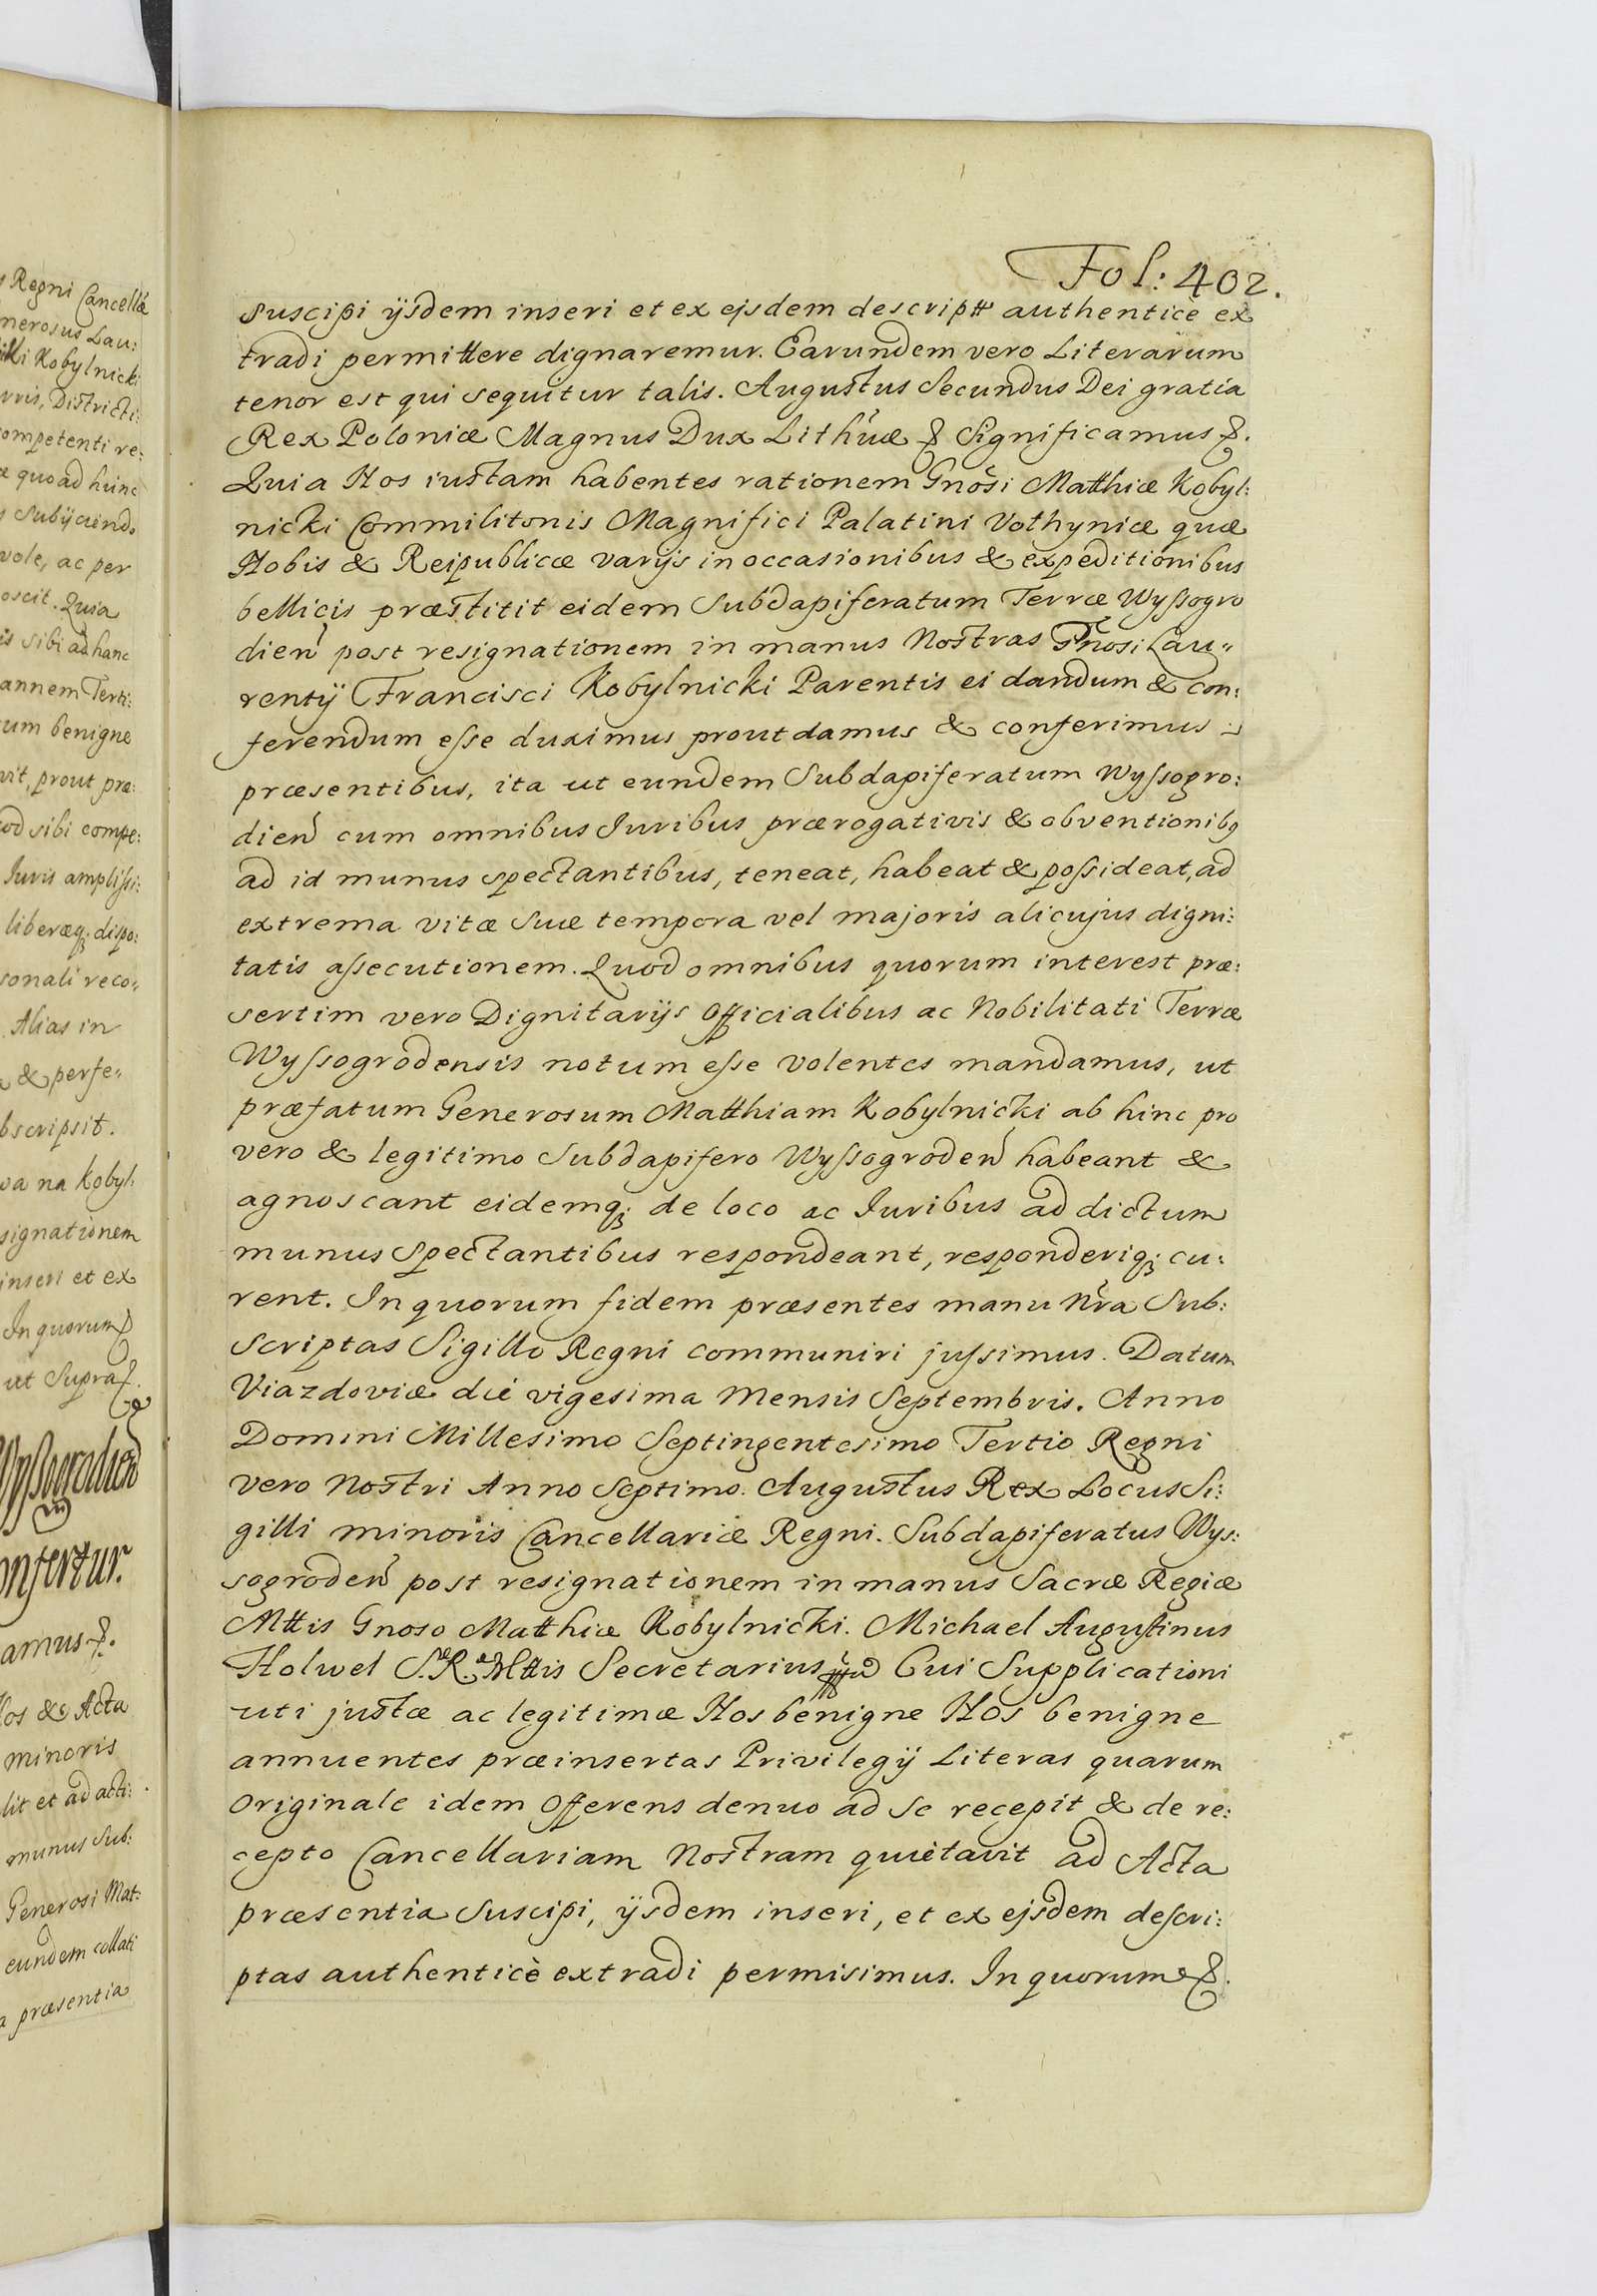 Fol: 402.
suscipi ijsdem inseri et ex ejsdem descriptt authenticè ex
tradi permittere dignaremur. Earundem vero Literarum
tenor est qui sequitur talis. Augustus Secundus Dei gratia
Rex Poloniæ Magnus Dux Lithuæ & Significamus &.
Quia Nos iustam habentes rationem Gnosi Matthiæ Kobyl:
nicki Commilitonis Magnifici Palatini Volhyniæ quæ
Nobis & Reipublicæ varijs in occasionibus & expeditionibus
bellicis præstitit eidem Subdapiferatum Terræ Wyssogro
dien post resignationem in manus Nostras Gnosi Lau„
rentij Francisci Kobylnicki Parentis ei dandum & con:
ferendum esse duximus prout damus & conferimus :
præsentibus, ita ut eundem Subdapiferatum Wyssogro:
dien cum omnibus Iuribus prærogativis & obventionibq
ad id munus spectantibus, teneat, habeat & possideat, ad
extrema vitæ suæ tempora vel majoris alicujus digni:
tatis assecutionem. Quod omnibus quorum interest præ:
sertim vero Dignitarijs Officialibus ac Nobilitati Terræ
Wyssogrodensis notum esse volentes mandamus, ut
præfatum Generosum Matthiam Kobylnicki ab hinc pro
vero & legitimo Subdapifero Wyssogroden habeant &
agnoscant eidemq; de loco ac Iuribus ad dictum
munus Spectantibus respondeant, responderiq; cu:
rent. In quorum fidem præsentes manu Nra Sub:
scriptas Sigillo Regni communiri jussimus. Datum
Viazdoviæ die vigesima Mensis Septembris. Anno
Domini Millesimo Septingentesimo Tertio Regni
vero Nostri Anno Septimo. Augustus Rex Locus Si:
gilli minoris Cancellariæ Regni. Subdapiferatus Wys:
sogroden post resignationem in manus Sacræ Regiæ
Mttis Gnoso Matthiæ Kobylnicki. Michael Augustinus
Holwel S. R. Mttis Secretarius Cui Supplicationi
uti justæ ac legitimæ Nos benigne Nos benigne
annuentes præinsertas Privilegij Literas quarum
Originale idem Offerens denuo ad se recepit & de re:
cepto Cancellariam Nostram quietavit ad Acta
præsentia suscipi, ijsdem inseri, et ex ejsdem descri:
ptas authenticè extradi permisimus. In quorum &.
Regni Cancellæ
nerosus Lau:
Kobylnicki
Districti:
ompetenti re:
quoad hunc
Subijciendo
vole, ac per
oscit. Quia
is sibi ad hanc
annem Terti:
um benigne
vit, prout præ:
od sibi compe:
Iuris amplissi:
liberæq; dispo:
sonali reco„
Alias in
& perfe„
bscripsit.
va na Kobyl:
signationem
inseri et ex
In quorum &
ut Supra &.
Wyssogrodien
onfertur.
amus &.
os & Acta
minoris
lit et ad acti:
munus Sub:
Generosi Mat:
eundem collati
a præsentia